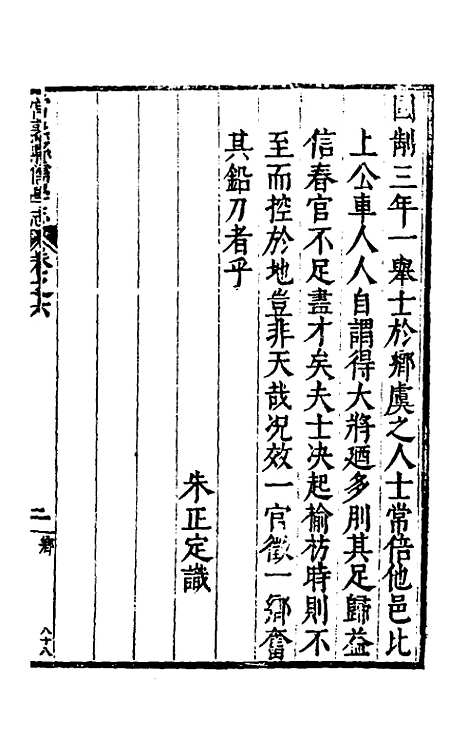 國制三年一舉士於鄉虞之人士常倍他邑比
上公車人人自謂得大將廼多刖其足歸益
信春官不足盡才矣夫士决起榆枋時則不
至而控於地豈非天哉况效一官徵一鄉奮
其鉛刀者乎
朱正定識
常熟縣儒學志 卷之六
二 鄉
八十八